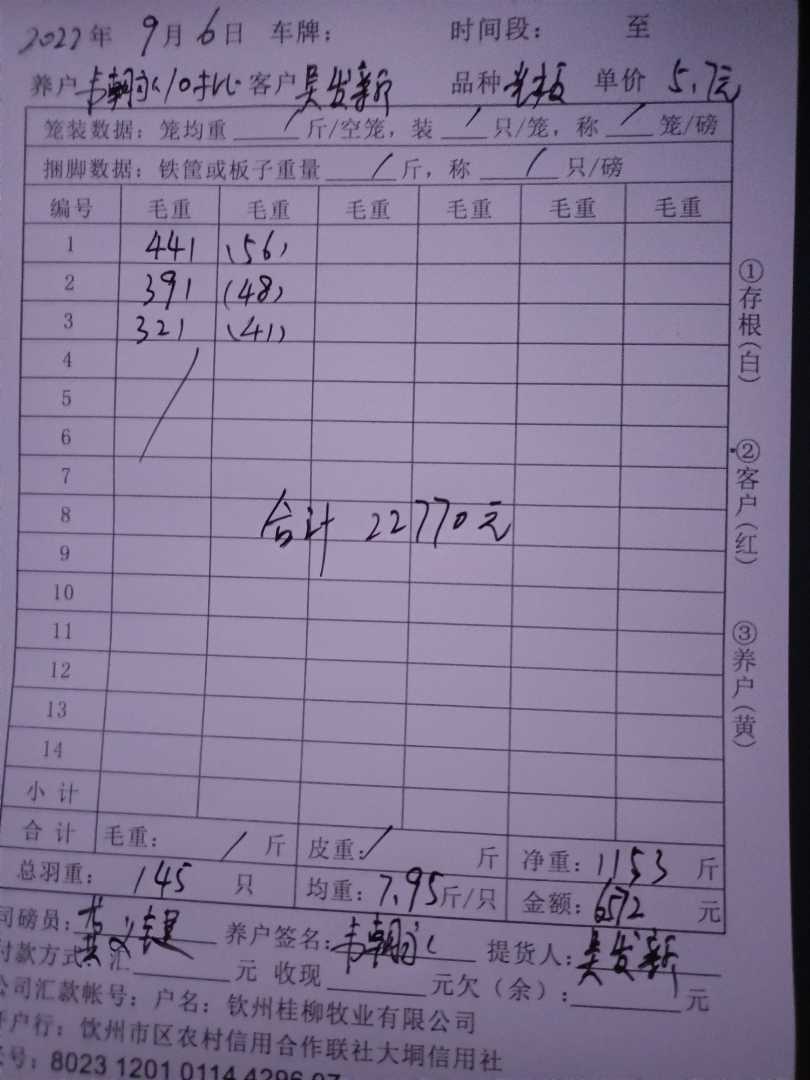 2022年 9月6日 车牌: 时间段: 至
养户 韦朝 客户 吴发新 品种 老板 单价 5.7元
笼装数据: 笼均重 / 斤/空笼, 装 / 只/笼, 称 / 笼/磅
捆脚数据: 铁筐或板子重量 / 斤, 称 / 只/磅
编号 毛重 毛重 毛重 毛重 毛重 毛重
1 441 (56)
2 391 (48)
3 321 (41)
4
5
6
7
8
合计 22770元
9
10
11
12
13
14
小计
合计 毛重: / 斤 皮重: / 斤 净重: 1153 斤
总羽重: 145 只 均重: 7.95斤/只 金额: 6572 元
司磅员: 黄 养户签名: 韦朝 提货人: 吴发新
付款方式 汇 元 收现 元欠(余): 元
公司汇款帐号: 户名: 钦州桂柳牧业有限公司
开户行: 钦州市区农村信用合作联社大垌信用社
号: 8023 1201 0114 4296 07
①存根(白)
②客户(红)
③养户(黄)